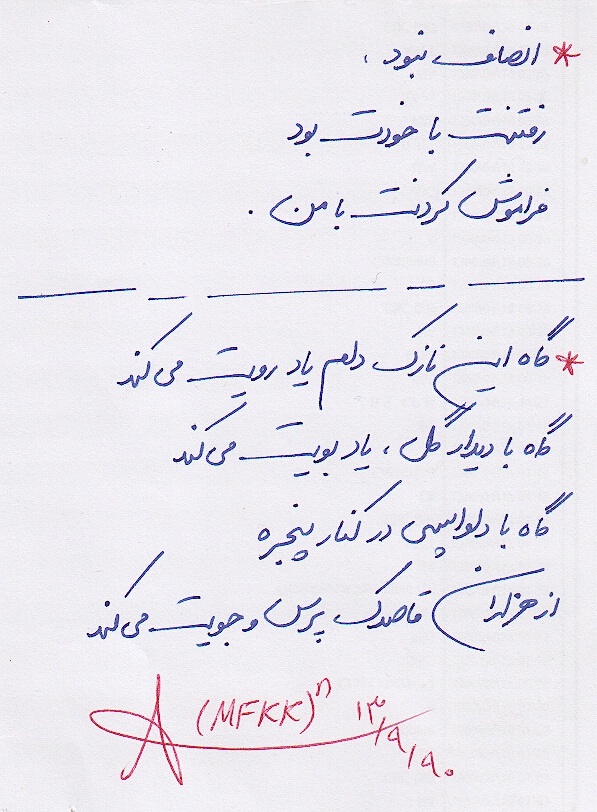 * انصاف نبود ،
رفتنت با خودت بود
فراموش کردنت با من .
* گاه این نازک دلم یاد رویت می کند
گاه با دیدار گل ، یاد بویت می کند
گاه با دلواپسی در کنار پنجره
از هزاران قاصدک پرس و جویت می کند
(MFKK)ⁿ ۱۳/۹/۹۰